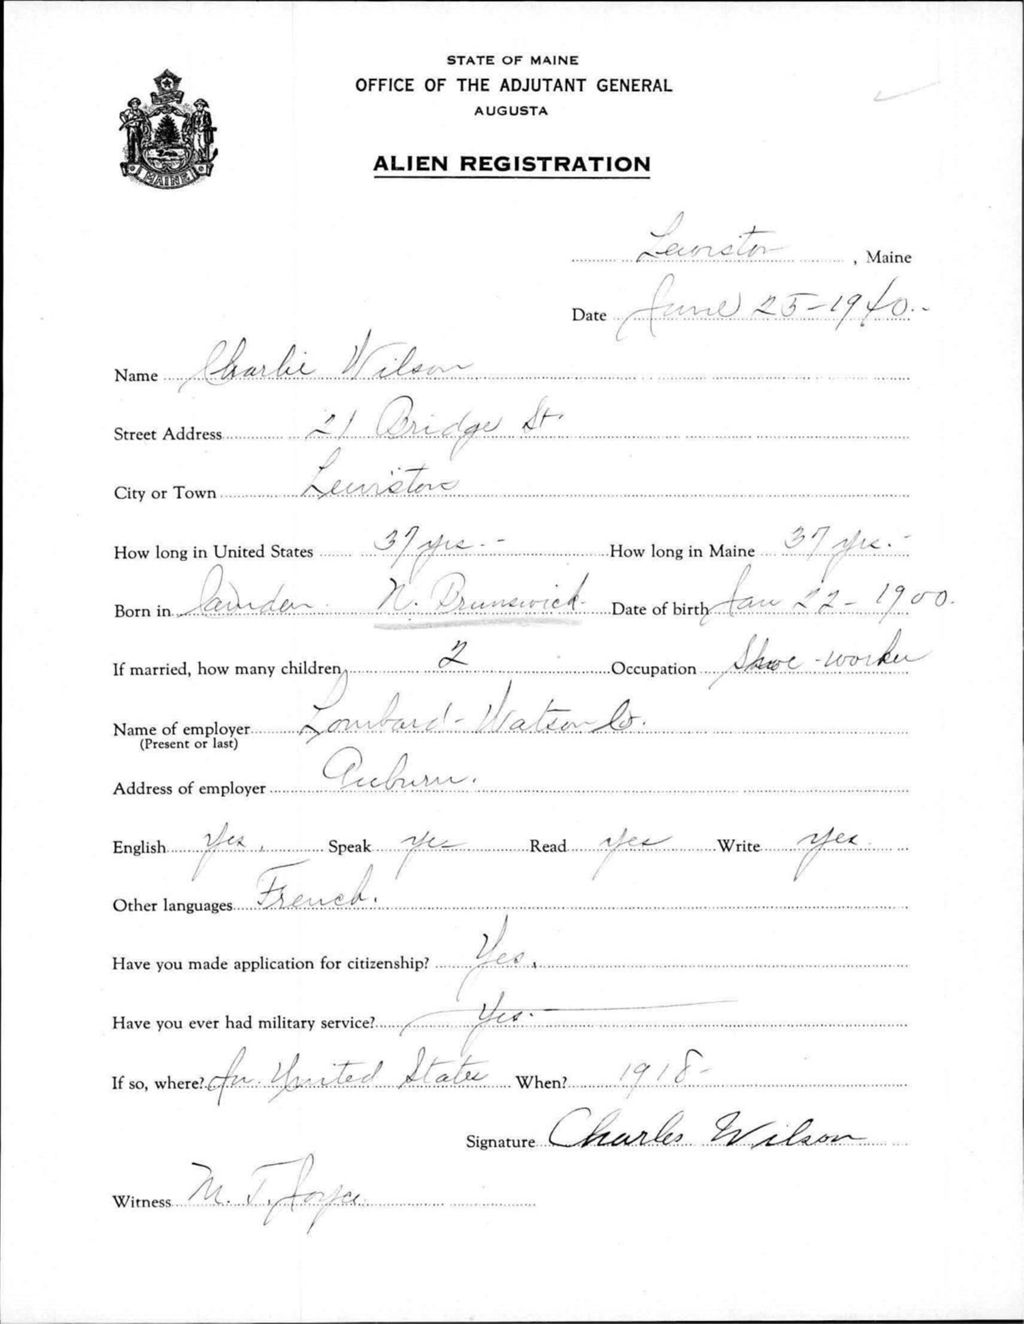 STATE OF MAINE
OFFICE OF THE ADJUTANT GENERAL
AUGUSTA
ALIEN REGISTRATION
MAINE
Lewiston, Maine
Date June 25-1940.-
Name Charlie Wilson
Street Address 21 Bridge St.
City or Town Lewiston
How long in United States 37 yrs.- How long in Maine 37 yrs.-
Born in Camden N. Brunswick. Date of birth Jan 22-1900.
If married, how many children 2 Occupation Shoe-worker
Name of employer Lombard-Watson Co.
(Present or last)
Address of employer Auburn.
English Yes. Speak yes Read yes Write yes
Other languages French.
Have you made application for citizenship? Yes.
Have you ever had military service? Yes.
If so, where? In United States When? 1918-
Signature Charles Wilson
Witness M. T. Joyce